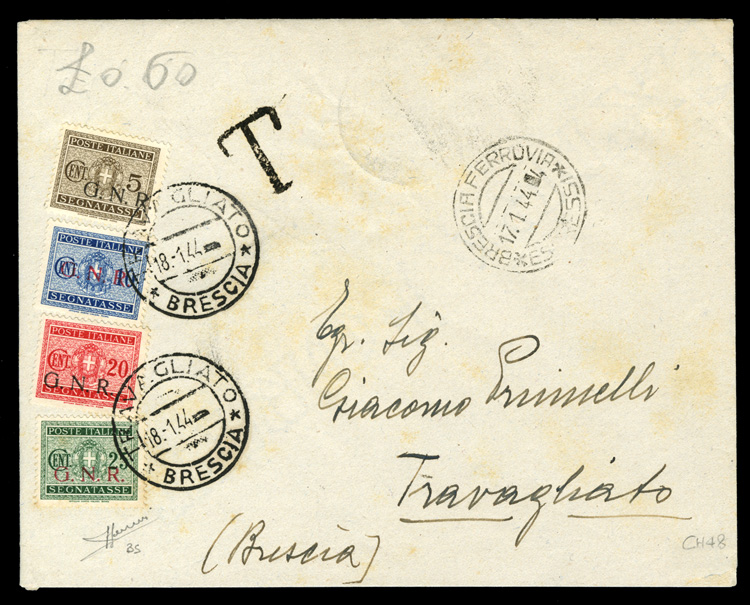 £0.60
T
POSTE ITALIANE
CENT. 5
G.N.R.
SEGNATASSE
POSTE ITALIANE
CENT. 10
G.N.R.
SEGNATASSE
POSTE ITALIANE
CENT. 20
G.N.R.
SEGNATASSE
POSTE ITALIANE
CENT. 25
G.N.R.
SEGNATASSE
TRAVAGLIATO
18-1.44
* BRESCIA *
TRAVAGLIATO
18-1.44
* BRESCIA *
BRESCIA FERROVIA
17.1.44
Egr. Sig.
Giacomo
Travagliato
(Brescia)
BS
CH48